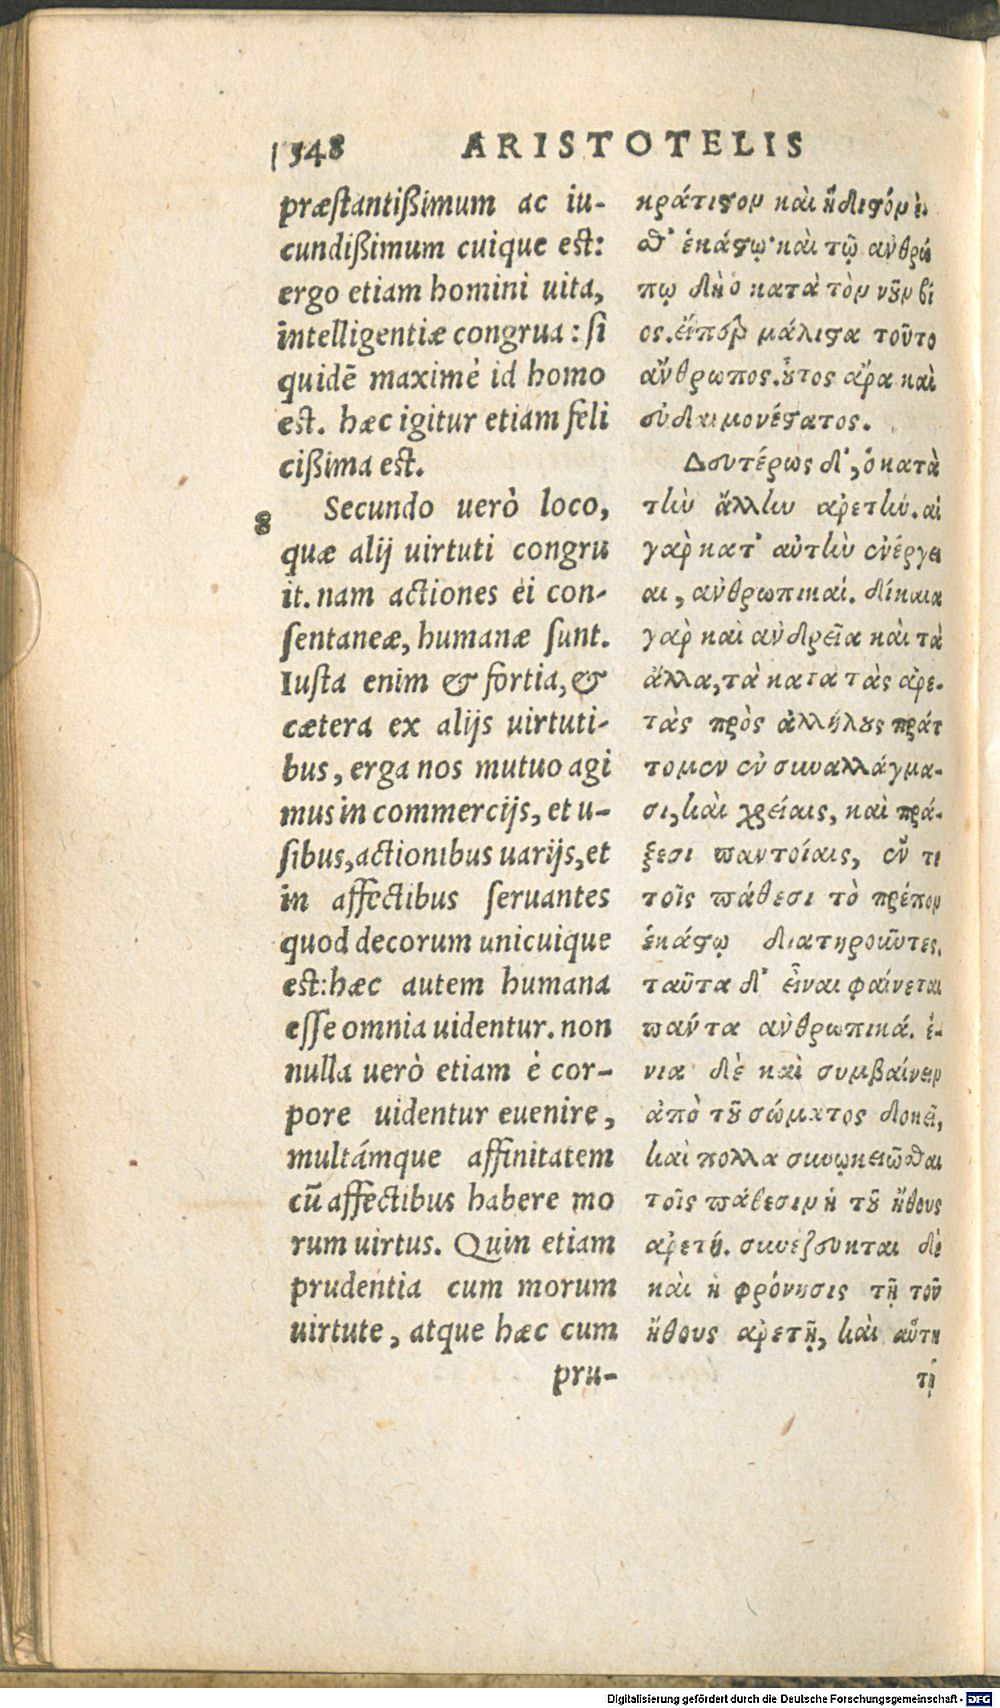 548 ARISTOTELIS
præstantißimum ac iu-
cundißimum cuique est:
ergo etiam homini uita,
intelligentiæ congrua: si
quidẽ maximè id homo
est. hæc igitur etiam feli
cißima est.
8 Secundo uerò loco,
quæ alij uirtuti congru
it. nam actiones ei con-
sentaneæ, humanæ sunt.
Iusta enim & fortia, &
cætera ex alijs uirtuti-
bus, erga nos mutuo agi
mus in commercijs, et u-
sibus, actionibus uarijs, et
in affectibus seruantes
quod decorum unicuique
est: hæc autem humana
esse omnia uidentur. non
nulla uerò etiam è cor-
pore uidentur euenire,
multámque affinitatem
cũ affectibus habere mo
rum uirtus. Quin etiam
prudentia cum morum
uirtute, atque hæc cum
pru-
κράτιστον καὶ ἥδιστόν ἐ
σθ' ἑκάστῳ· καὶ τῷ ἀνθρώ
πῳ δὴ ὁ κατὰ τὸν νοῦν βί
ος. εἴπερ μάλιστα τοῦτο
ἄνθρωπος. οὗτος ἄρα καὶ
εὐδαιμονέστατος.
Δευτέρως δ', ὁ κατὰ
τὴν ἄλλην ἀρετήν. αἱ
γὰρ κατ' αὐτὴν ἐνέργει
αι, ἀνθρωπικαί. δίκαια
γὰρ καὶ ἀνδρεῖα καὶ τὰ
ἄλλα, τὰ κατὰ τὰς ἀρε-
τὰς πρὸς ἀλλήλους πράτ
τομεν ἐν συναλλάγμα-
σι, καὶ χρείαις, καὶ πρά-
ξεσι παντοίαις, ἔν τε
τοῖς πάθεσι τὸ πρέπον
ἑκάστῳ διατηροῦντες.
ταῦτα δ' εἶναι φαίνεται
πάντα ἀνθρωπικά. ἔ-
νια δὲ καὶ συμβαίνειν
ἀπὸ τοῦ σώματος δοκεῖ,
καὶ πολλὰ συνῳκειῶσθαι
τοῖς πάθεσιν ἡ τοῦ ἤθους
ἀρετή. συνέζευκται δὲ
καὶ ἡ φρόνησις τῇ τοῦ
ἤθους ἀρετῇ, καὶ αὕτη
τῇ
Digitalisierung gefördert durch die Deutsche Forschungsgemeinschaft - DFG